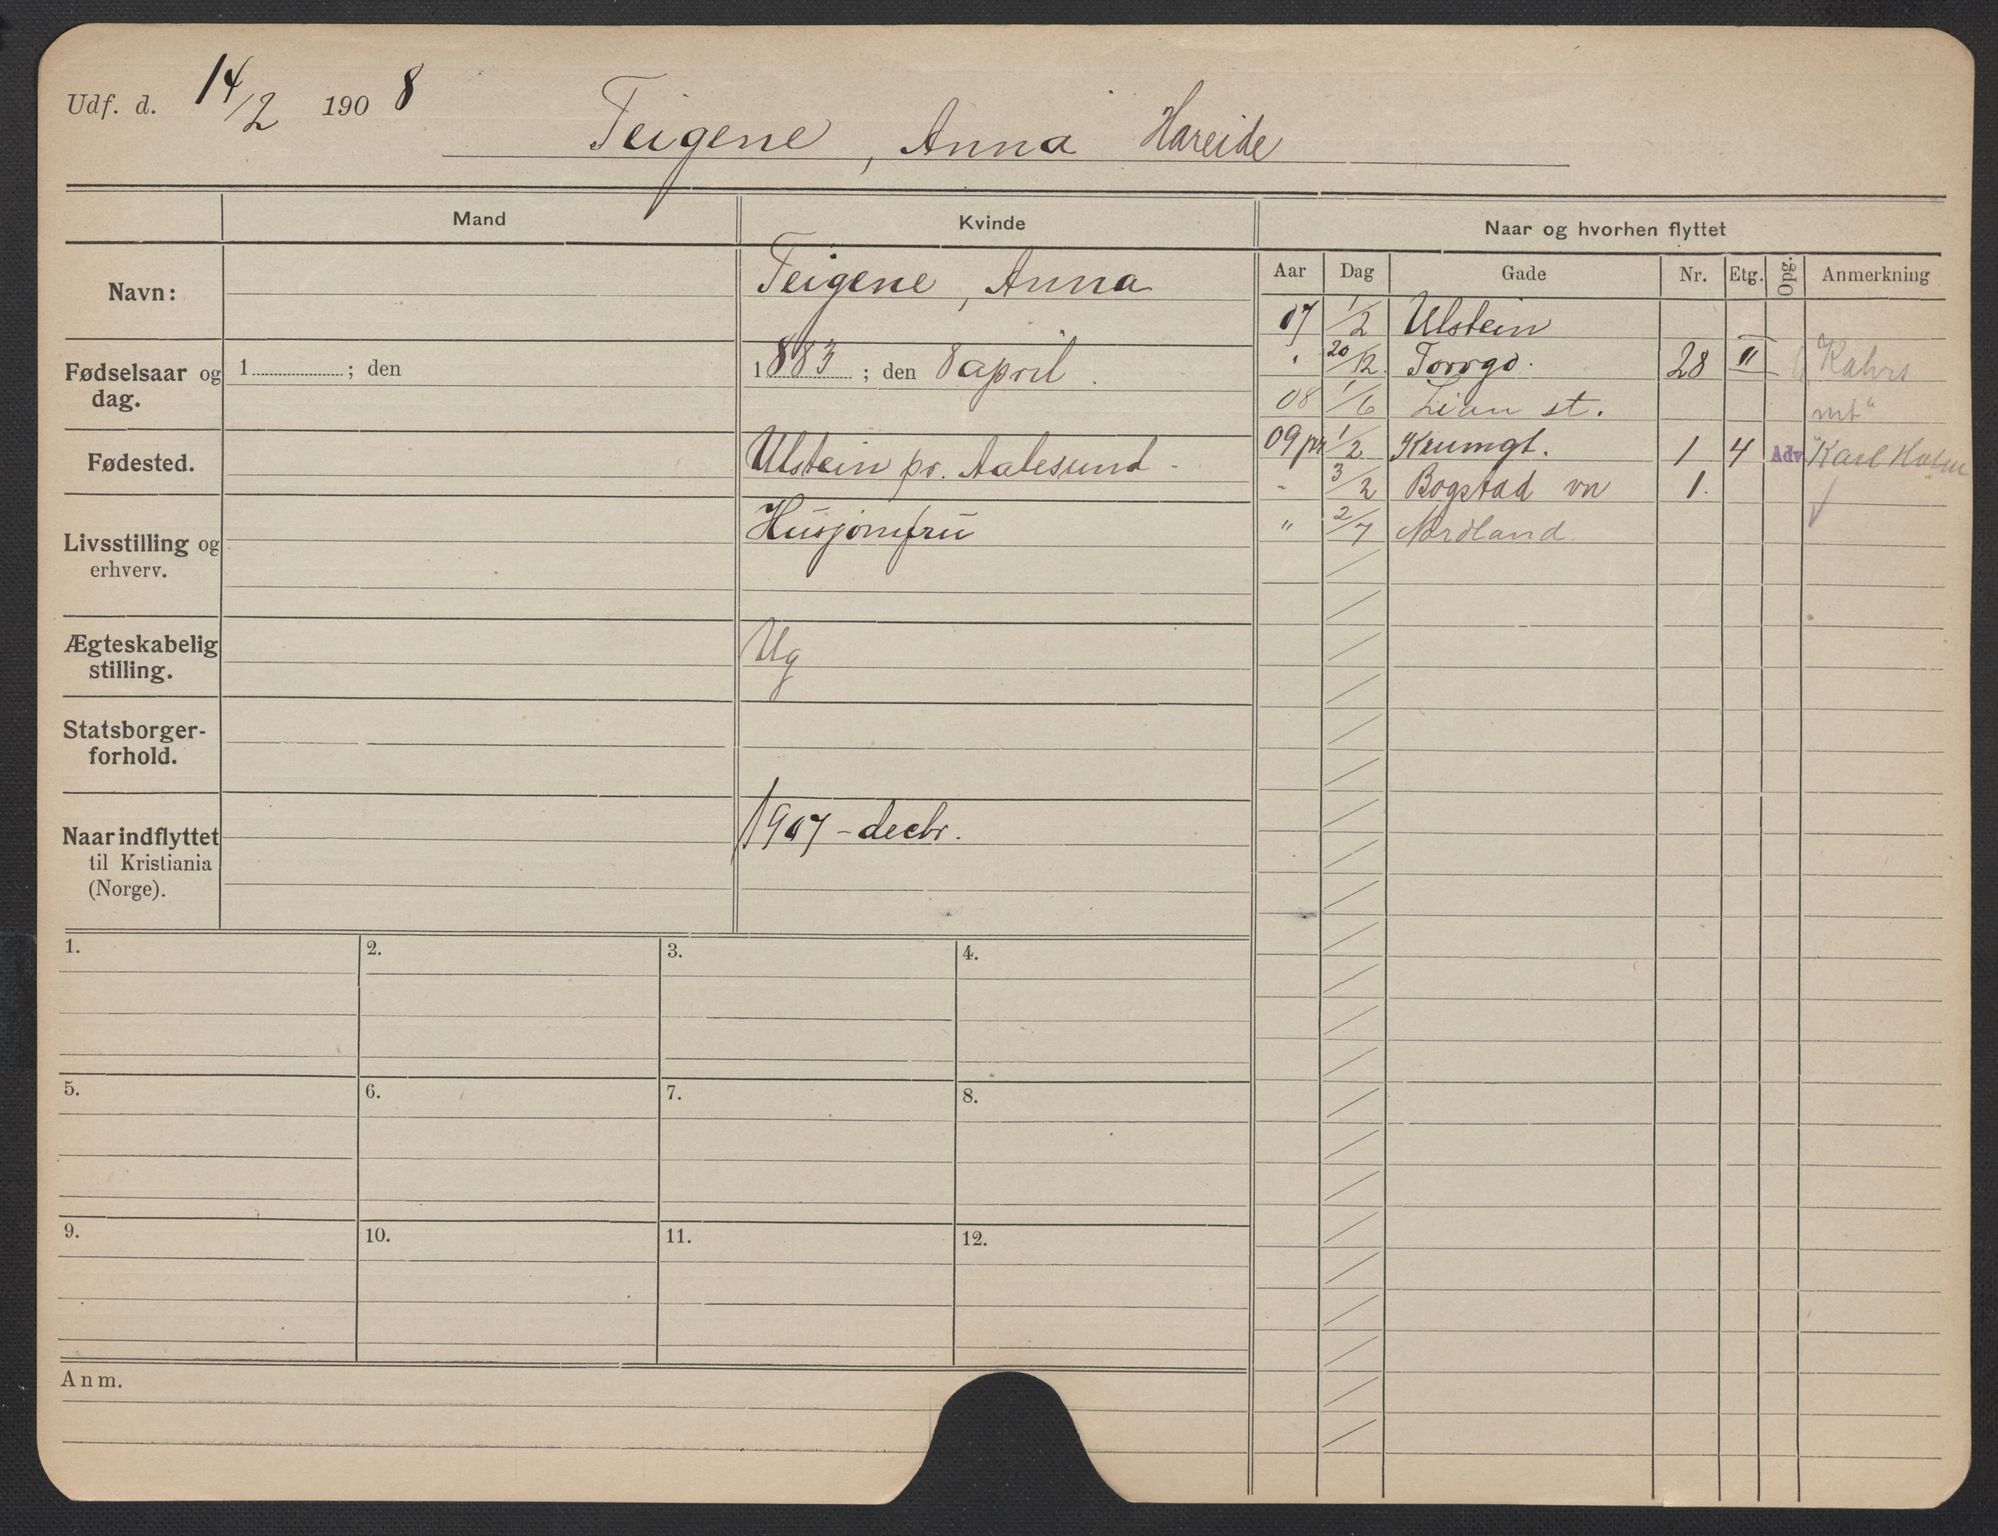 Udf. d. 14/2 1908
Teigene, Anna Hareide
Mand
Kvinde
Navn:
Teigene, Anna
Fødselsaar og dag.
1 ; den
1883 ; den 8 april.
Fødested.
Ulstein pr. Aalesund -
Livsstilling og erhverv.
Husjomfru
Ægteskabelig stilling.
Ug
Statsborger-
forhold.
Naar indflyttet
til Kristiania
(Norge).
1907 - decbr.
1. 2. 3. 4.
5. 6. 7. 8.
9. 10. 11. 12.
Anm.
Naar og hvorhen flyttet
Aar Dag Gade Nr. Etg. Opg. Anmerkning
07 1/2 Ulstein
" 20/12 Torvgd. 28 II Kahrs
08 1/6 Lian st. nt"
09 pr 1/2 Keumgt. 1 4 Adv "Karl Holm
- 3/2 Bogstad vn 1.
" 2/7 Nordland